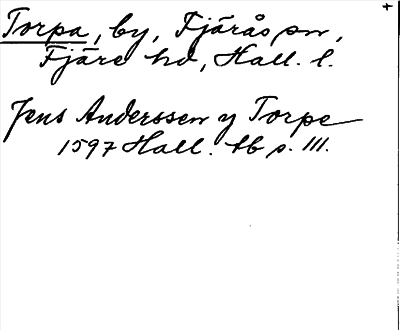 Torpa, by, Fjärås sn,
Fjäre hd, Hall. l.
Jens Anderssen y Torpe
1597 Hall. tb s. III.